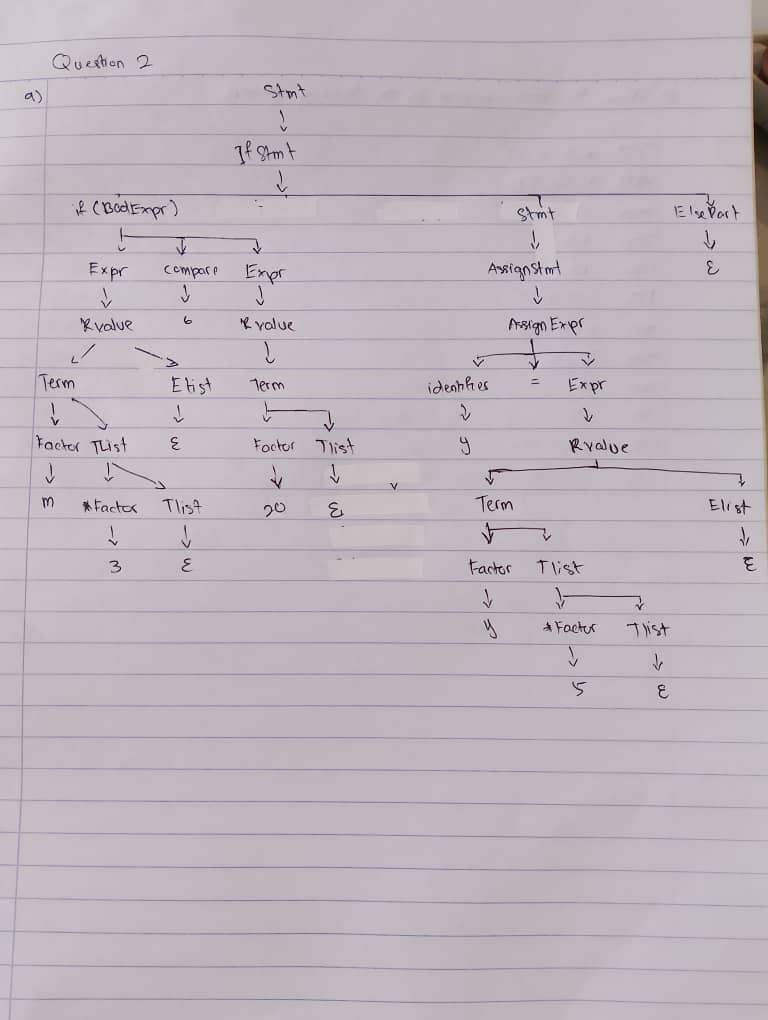 Question 2
a) Stmt
If Stmt
if (BoolExpr) Stmt ElsePart
Expr compare Expr AssignStmt ε
Rvalue Rvalue AssignExpr
Term Elist Term identifier = Expr
Factor TList ε Factor Tlist y Rvalue
m *Factor Tlist 20 ε Term Elist
3 ε Factor Tlist ε
y *Factor Tlist
5 ε